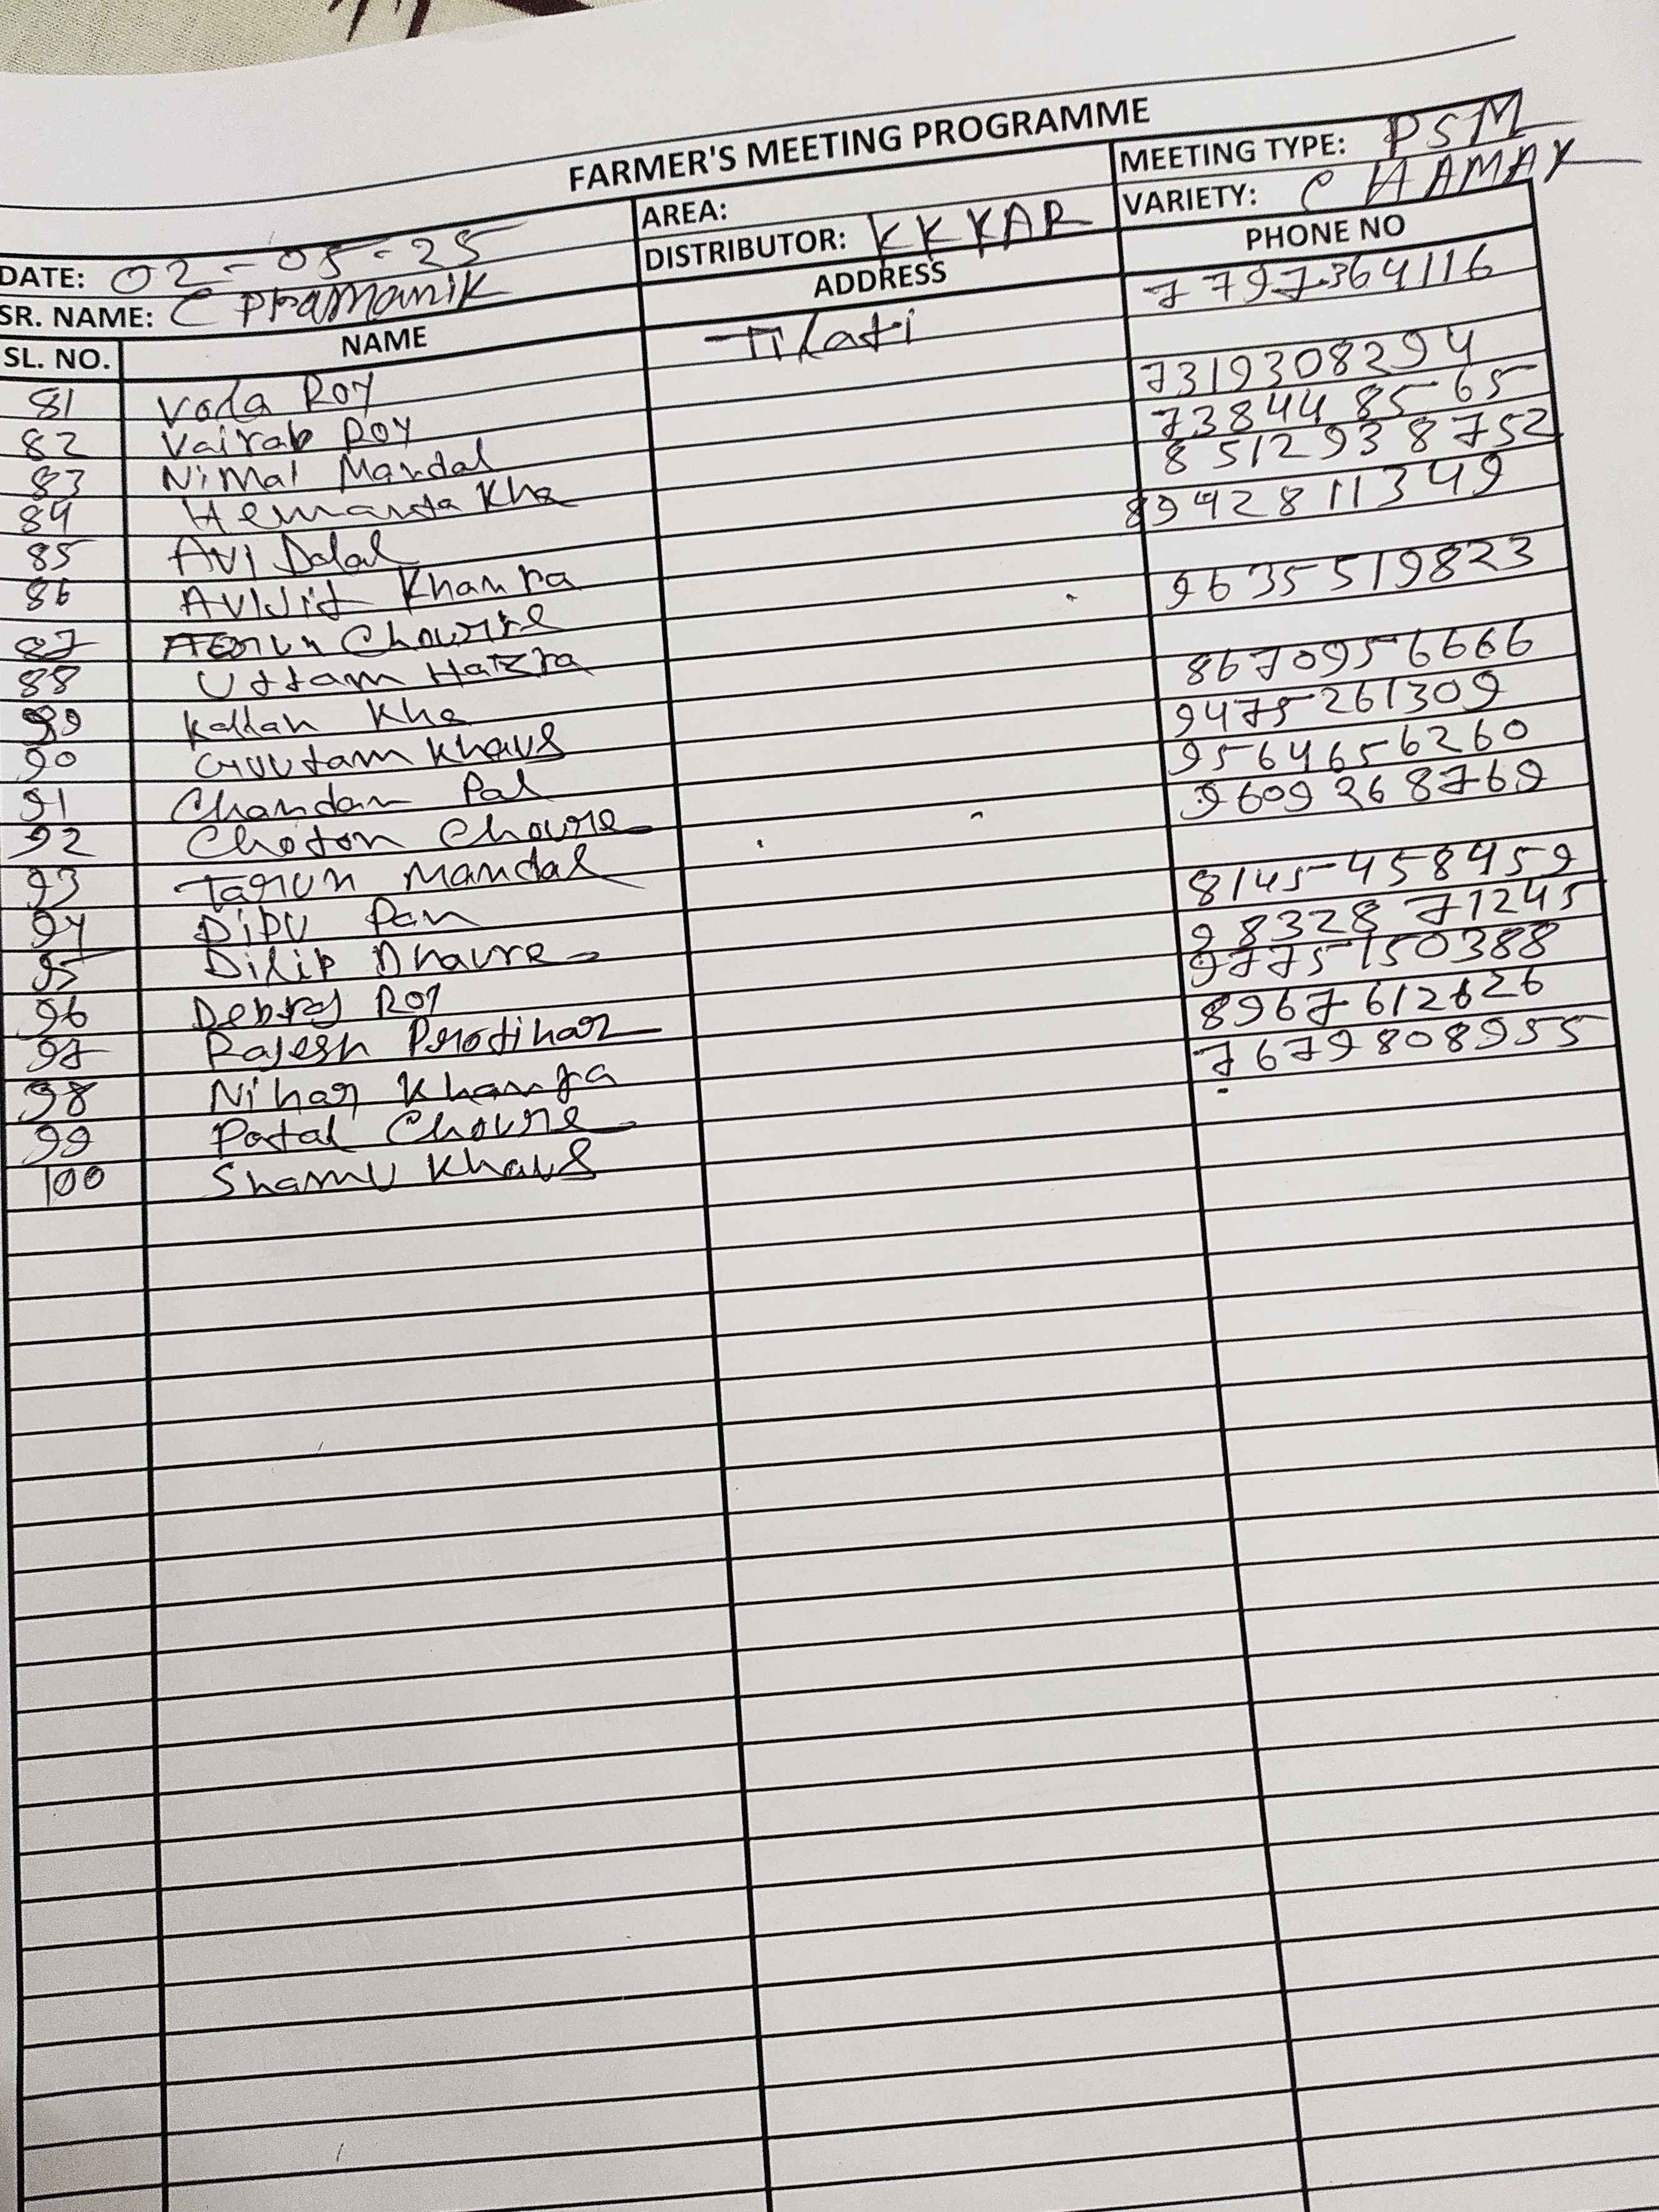 FARMER'S MEETING PROGRAMME
DATE: 02-05-25 AREA: MEETING TYPE: PSM
SR. NAME: C Pramanik DISTRIBUTOR: KKKAR VARIETY: CHAMAK
SL. NO. NAME ADDRESS PHONE NO
81 Voda Roy Tilati 7797364116
82 Vairab Roy
83 Nimal Mandal 7319308294
84 Hemanta Kha 73844 85-65
85 Avi Dalal 8512938752
86 Avijit Khamra 8942811349
87 Chourre
88 Uttam Hazra 9635519823
89 Kallan Kha
90 Guutam Khaus 8670956666
91 Chandan Pal 9475261309
92 Choton Choure 9564656260
93 Tarun Mandal 9609268769
94 Dipu Pan
95 Dilip Dhaure 8145458459
96 Debraj Roy 9832871245
97 Rajesh Protihar 9775150388
98 Nihar Khamra 8967612626
99 Potal Choure 7679808955
100 Shamu Khaus